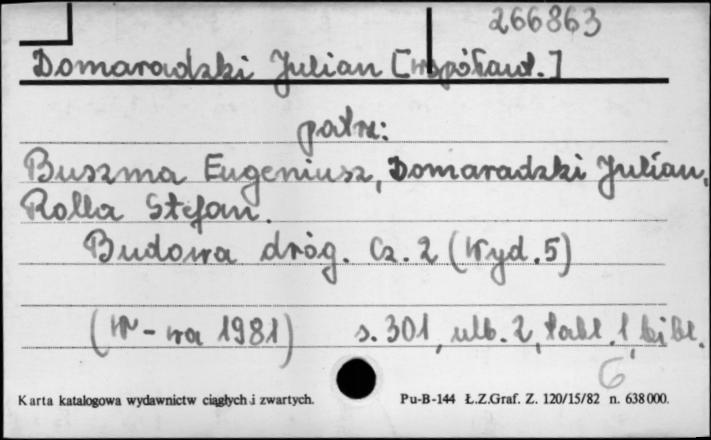 266863
Domaradzki Julian [współaut.]
patrz:
Buszma Eugeniusz, Domaradzki Julian,
Rolla Stefan.
Budowa dróg. Cz. 2 (Wyd. 5)
(W-wa 1981) s. 301, ulb. 2, tabl. 1, bibl.
6
Karta katalogowa wydawnictw ciągłych i zwartych. Pu-B-144 Ł.Z.Graf. Z. 120/15/82 n. 638000.